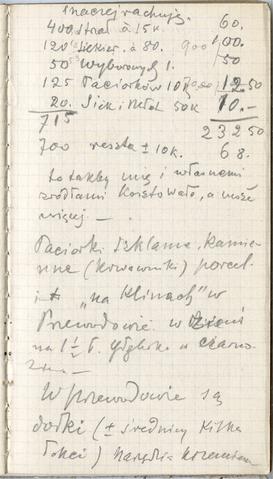 Inaczej rachując.
400 strzał à 15 k. 60.
120 siekier. à. 80. 900 100.
50 wyborowych 1. 50
125 Paciorków 10 12 50
20. Siek i Młot 50 K 10.-
715 232 50
700 reszta ± 10 k. 68.
to takby się i własnemi
źródłami kosztowało, a może
więcej —
Paciorki szklanne, Kamie-
nne (krwawniki) porcel.
i "na Klinach" w
Przewodowie. w
na 1½ ł. głęboko w czarno-
W przewodowie są
dołki (± średnicy Kilka
łokci) narzędzia krzemien